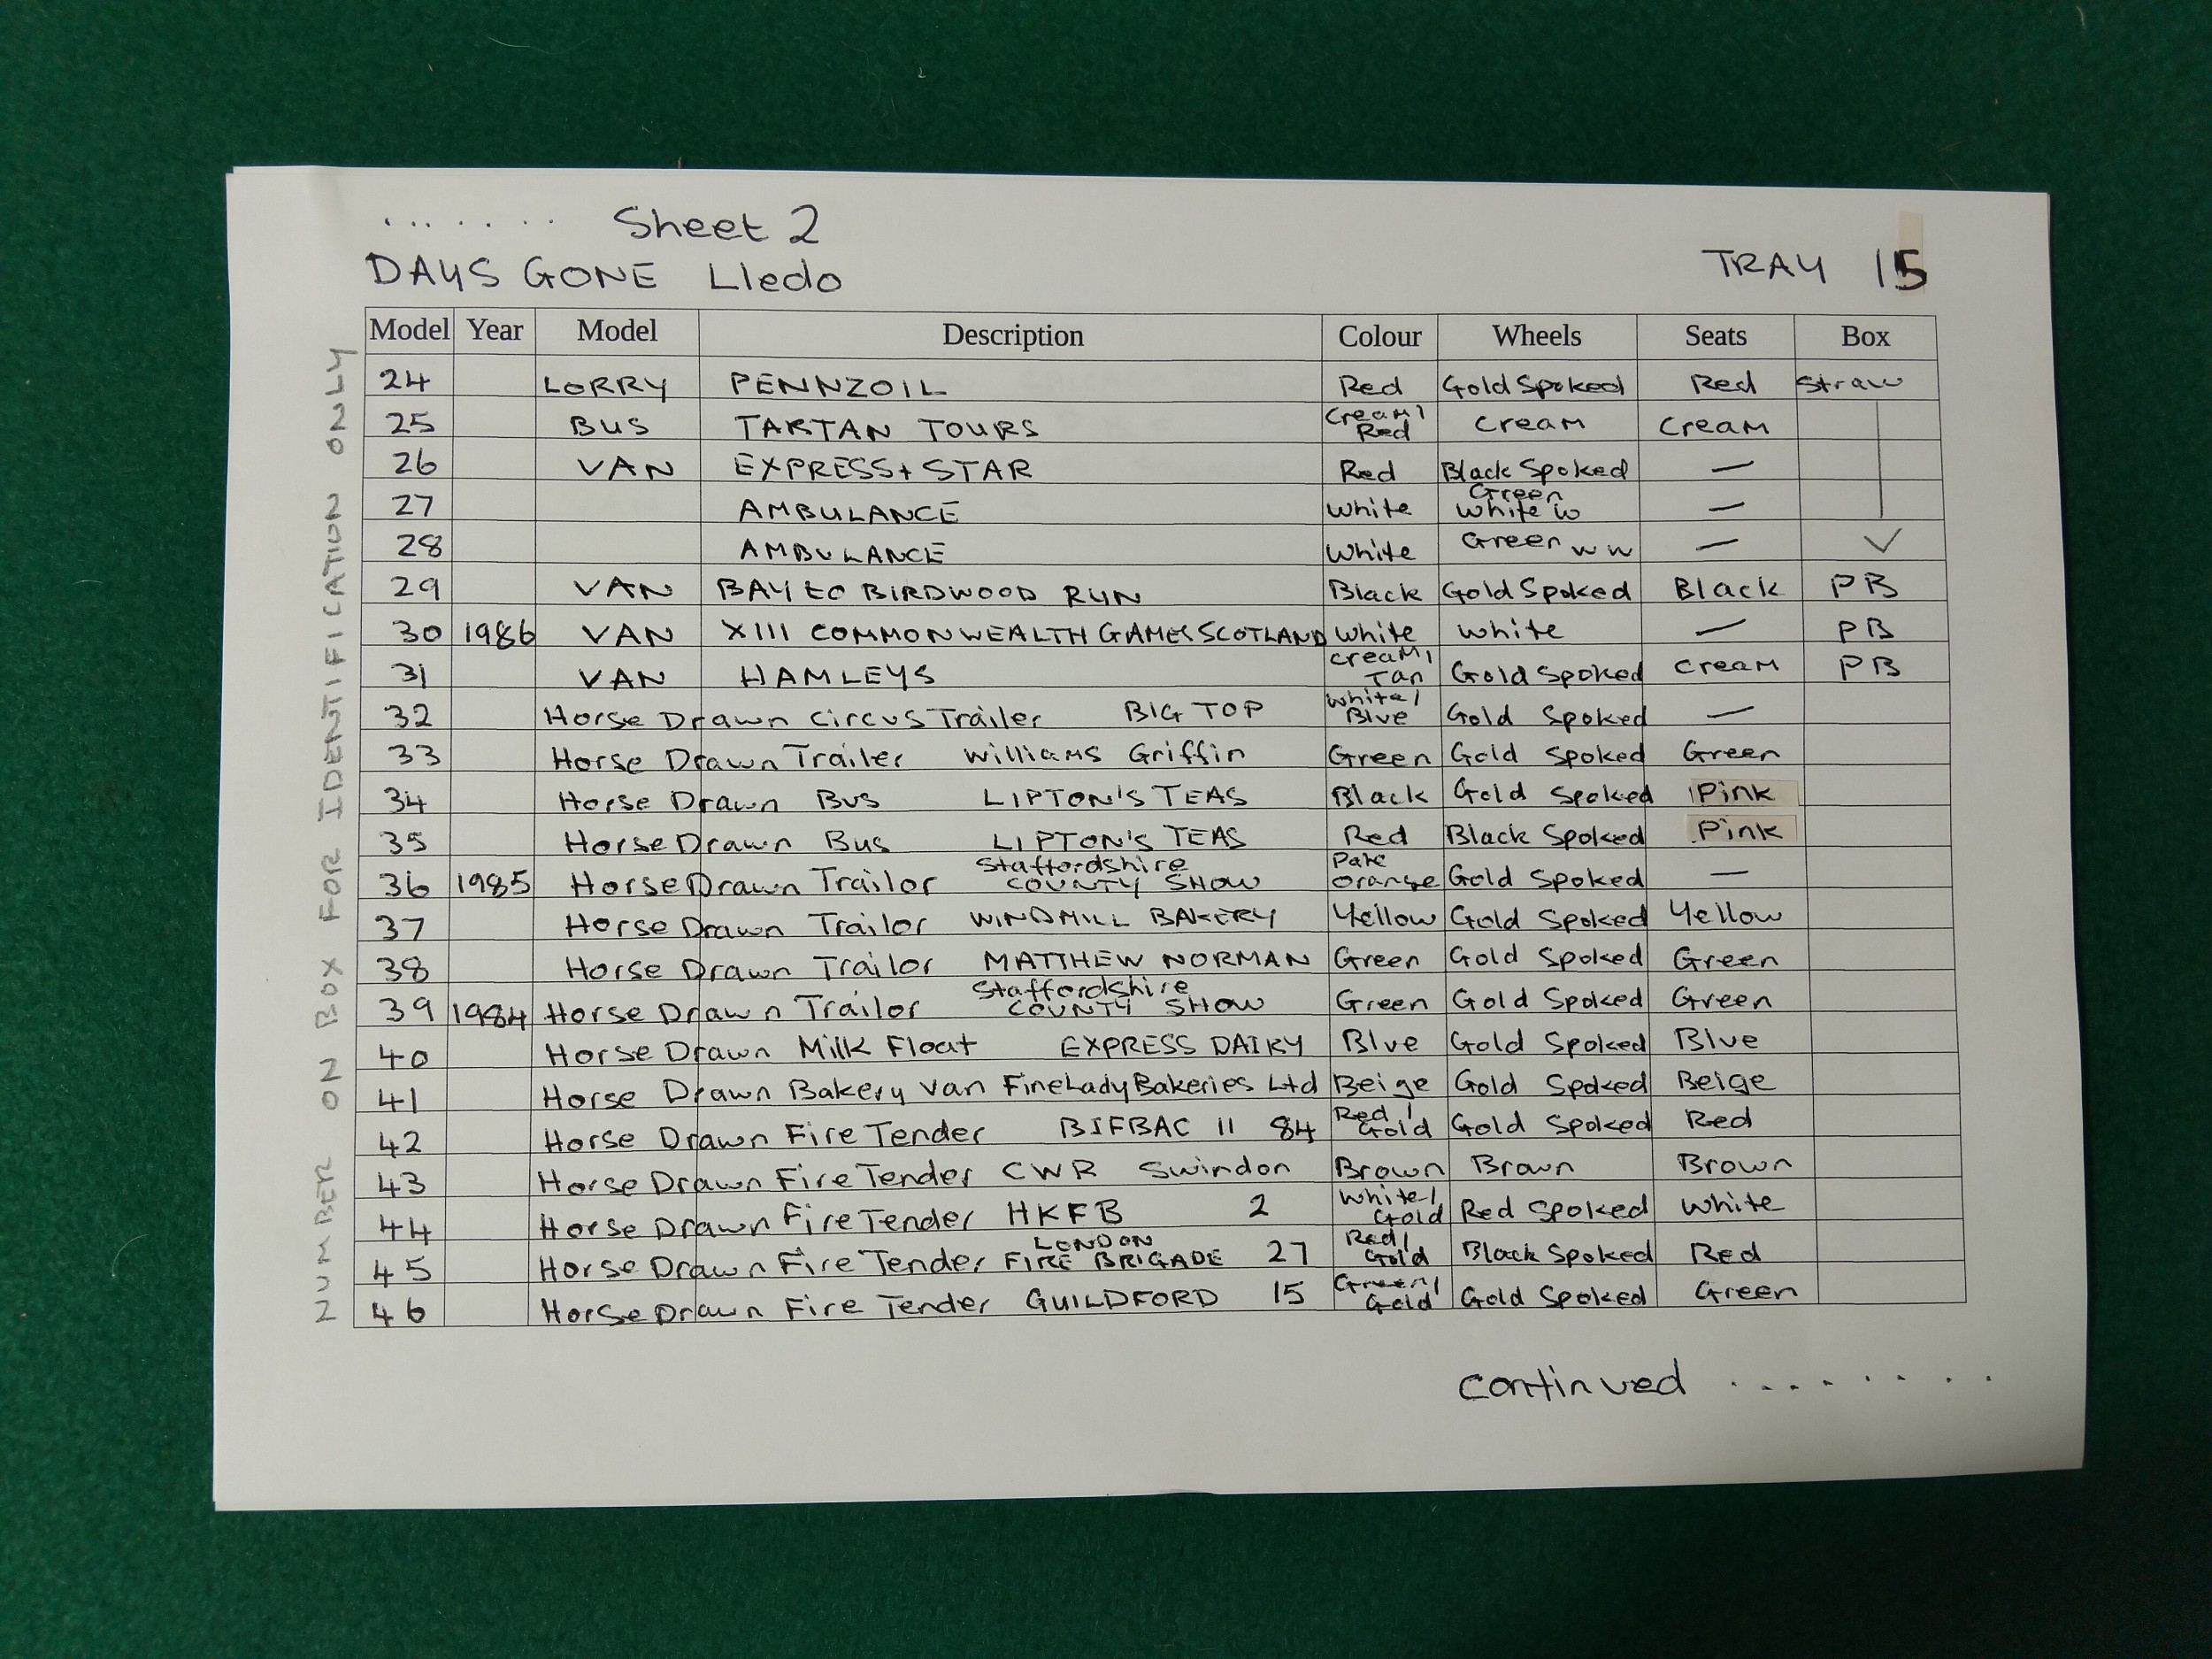 ....... Sheet 2
DAYS GONE Lledo TRAY 15
NUMBER ON BOX FOR IDENTIFICATION ONLY
Model Year Model Description Colour Wheels Seats Box
24 LORRY PENNZOIL Red Gold Spoked Red Straw
25 BUS TARTAN TOURS Cream/ Red Cream Cream
26 VAN EXPRESS + STAR Red Black Spoked —
27 AMBULANCE White Green White W —
28 AMBULANCE White Green W W — ✓
29 VAN BAY to BIRDWOOD RUN Black Gold Spoked Black PB
30 1986 VAN XIII COMMONWEALTH GAMES SCOTLAND White White — PB
31 VAN HAMLEYS Cream/ Tan Gold Spoked Cream PB
32 Horse Drawn Circus Trailer BIG TOP White/ Blue Gold Spoked —
33 Horse Drawn Trailer Williams Griffin Green Gold Spoked Green
34 Horse Drawn Bus LIPTON'S TEAS Black Gold Spoked Pink
35 Horse Drawn Bus LIPTON'S TEAS Red Black Spoked Pink
36 1985 Horse Drawn Trailor Staffordshire COUNTY SHOW Pale Orange Gold Spoked —
37 Horse Drawn Trailor WINDMILL BAKERY Yellow Gold Spoked Yellow
38 Horse Drawn Trailor MATTHEW NORMAN Green Gold Spoked Green
39 1984 Horse Drawn Trailor Staffordshire COUNTY SHOW Green Gold Spoked Green
40 Horse Drawn Milk Float EXPRESS DAIRY Blue Gold Spoked Blue
41 Horse Drawn Bakery Van Fine Lady Bakeries Ltd Beige Gold Spoked Beige
42 Horse Drawn Fire Tender BIFBAC II 84 Red/ Gold Gold Spoked Red
43 Horse Drawn Fire Tender CWR Swindon Brown Brown Brown
44 Horse Drawn Fire Tender HKFB 2 White/ Gold Red Spoked White
45 Horse Drawn Fire Tender LONDON FIRE BRIGADE 27 Red/ Gold Black Spoked Red
46 Horse Drawn Fire Tender GUILDFORD 15 Green/ Gold Gold Spoked Green
continued ........